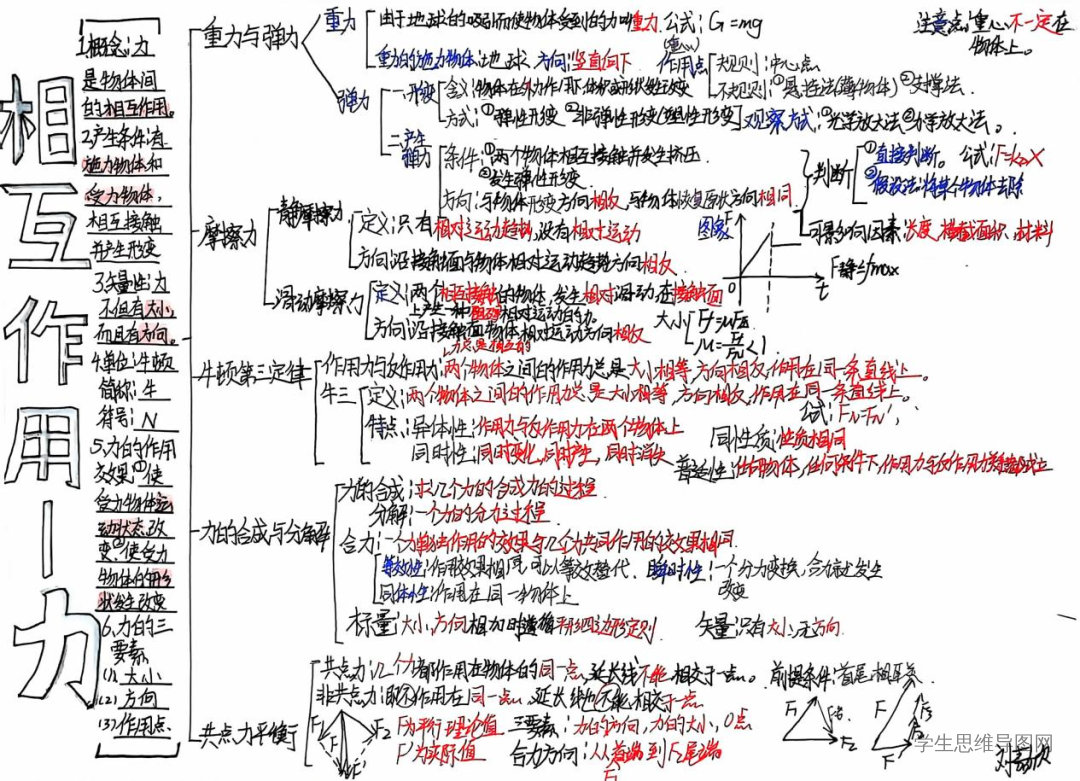 相互作用—力
1.概念:力
是物体间
的相互作用。
2.产生条件:有
施力物体和
受力物体,
相互接触
并产生形变
3.矢量性:力
不但有大小,
而且有方向。
4.单位:牛顿
简称:牛
符号:N
5.力的作用
效果:①使
受力物体运
动状态改
变②使受力
物体的形
状发生改变
6.力的三
要素
(1)大小
(2)方向
(3)作用点
重力与弹力
重力
由于地球的吸引而使物体受到的力叫重力 公式:G=mg
重力的施力物体:地球 方向:竖直向下 作用点
(重心)
规则:中心点
不规则:①悬挂法(薄物体)②支撑法.
注意点:重心不一定在
物体上。
弹力
一.形变
含义:物体在外力作用下体积或形状发生改变
方式:①弹性形变 ②非弹性形变(塑性形变)
观察方式:①光学放大法②力学放大法。
二.产生
弹力
条件:①两个物体相互接触并发生挤压
②发生弹性形变
方向:与物体形变方向相反,与物体恢复原状方向相同
判断
①直接判断。公式:F=kx
②假设法:将某个物体去除
可影响因素:长度,横截面积,材料
摩擦力
静摩擦力
定义:只有相对运动趋势,没有相对运动
方向:沿接触面与物体相对运动趋势方向相反
图象
F
F静≤fmax
O
t
滑动摩擦力
定义:两个相互接触的物体,发生相对滑动,在接触面
上产生一种阻碍相对运动的力。
方向:沿接触面物体相对运动方向相反
大小
牛顿第三定律
力总是相互的
作用力与反作用力:两个物体之间的作用力总是大小相等,方向相反,作用在同一条直线上。
牛三
定义:两个物体之间的作用力总是大小相等,方向相反,作用在同一条直线上。
公式:FN=FN′;
特点:异体性:作用力与反作用力在两个物体上
同性质:性质相同
同时性:同时变化,同时产生,同时消失
普适性:任何物体,任何条件下,作用力与反作用力关系都成立
力的合成与分解
力的合成:求几个力的合成力的过程
分解:一个力的分力过程.
合力:一个力单独作用的效果与几个力共同作用的效果相同.
等效性:作用效果相同,可以等效替代. 瞬时性:一个分力变换,合力随之发生
改变
同体性:作用在同一物体上
标量:大小,方向相加时遵循平形四边形定则. 矢量:只有大小,无方向.
共点力平衡
共点力:几个力都作用在物体的同一点,延长线不能相交于一点。 前提条件:首尾相连
非共点力:既不作用在同一点,延长线也不能相交于一点
F1
F2
F′
F为平行理论值
F′为实际值
三要素:力的方向,力的大小,O点
合力方向:从F1首端到F2尾端
F1
F2
F
F3
F2
F1
学生思维导图网